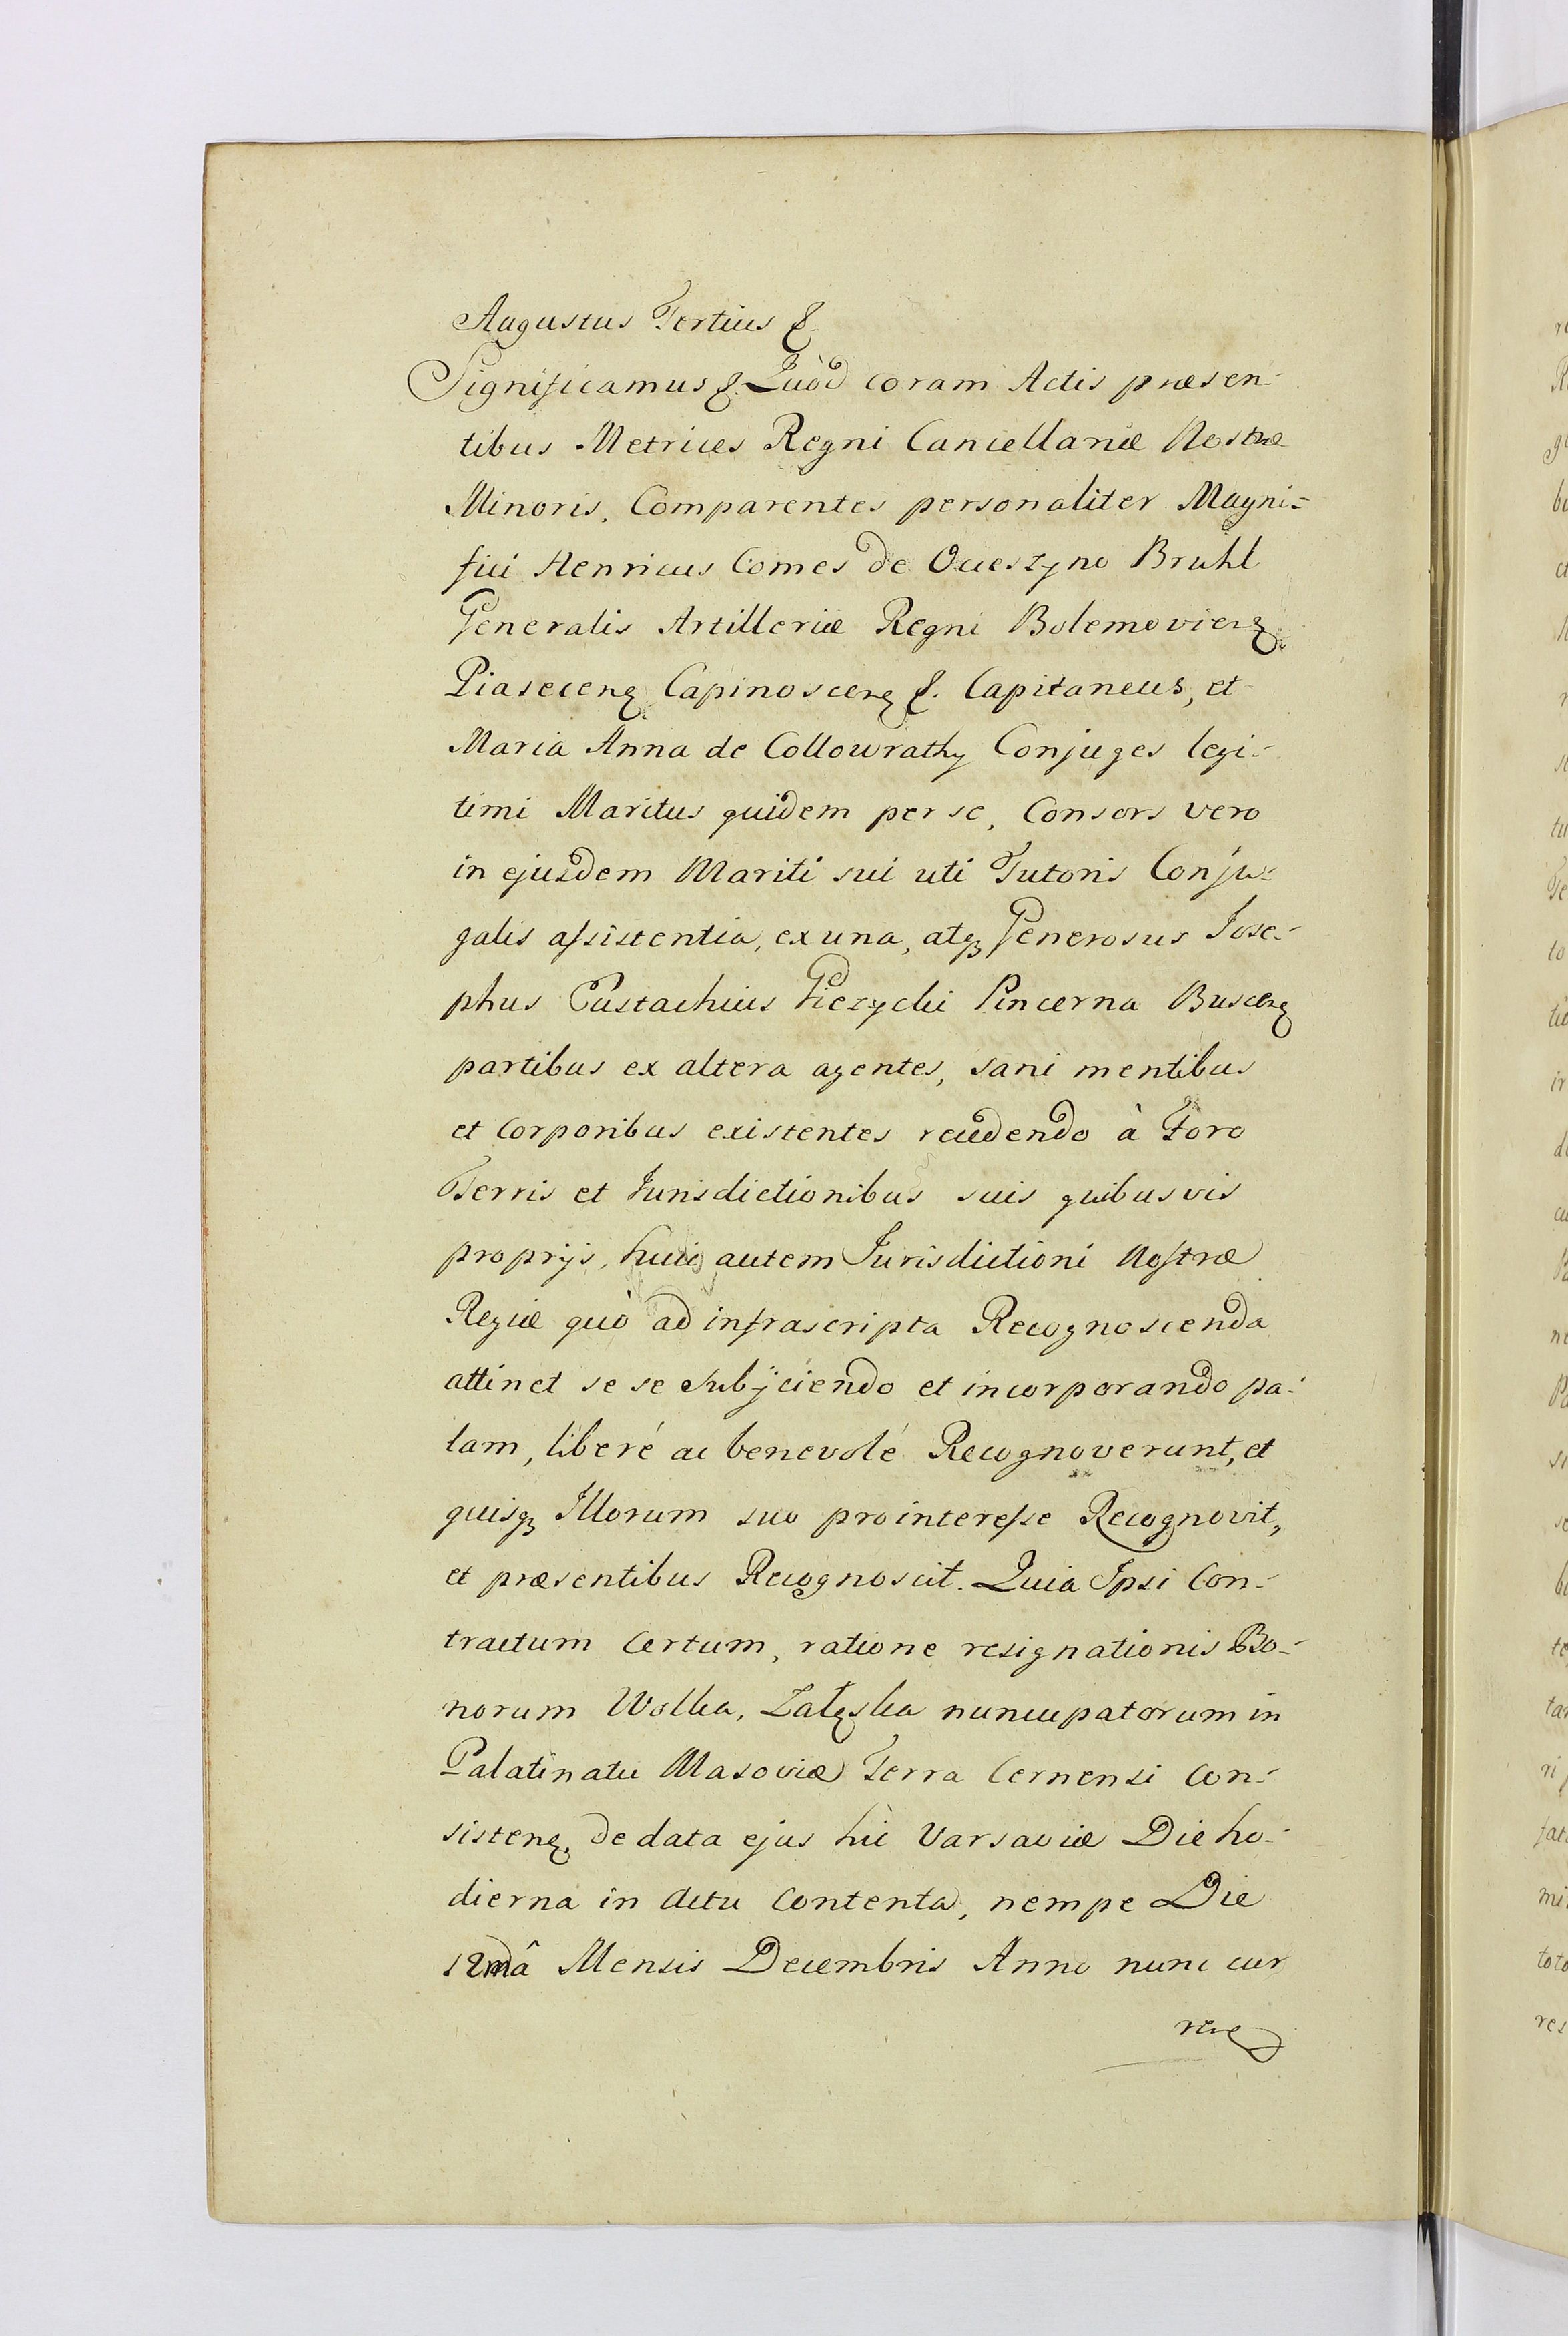 Augustus Tertius &.
Significamus &. Quòd coram Actis præsen-
tibus Metrices Regni Cancellariæ Nostræ
Minoris, Comparentes personaliter Magni-
fici Henricus Comes de Ocieszyno Bruhl
Generalis Artilleriæ Regni Bolemovieng.
Piasecceng Capinosceng &. Capitaneus, et
Maria Anna de Collowrathy Conjuges legi-
timi Maritus quidem per se, Consors vero
in ejusdem Mariti sui uti Tutoris Conju-
galis assistentia, ex una, atq Generosus Jose-
phus Eustachius Pincerna Busceng
partibus ex altera agentes, sani mentibus
et Corporibus existentes recedendo à Foro
Terris et Jurisdictionibus suis quibusvis
proprijs, huic autem Jurisdictioni Nostræ
Regiæ quò ad infrascripta Recognoscenda
attinet se se Subijciendo et incorporando pa-
lam, liberé ac benevolé Recognoverunt, et
quisq Illorum suo pro interesse Recognovit,
et præsentibus Recognoscit. Quia Ipsi Con-
tractum Certum, ratione resignationis Bo-
norum Wolka, Załęska nuncupatorum in
Palatinatu Masoviæ Terra Cernensi Con-
sisteng, de data ejus hic Varsaviæ Die ho-
dierna in Actu Contenta, nempe Die
12mâ Mensis Decembris Anno nunc cur